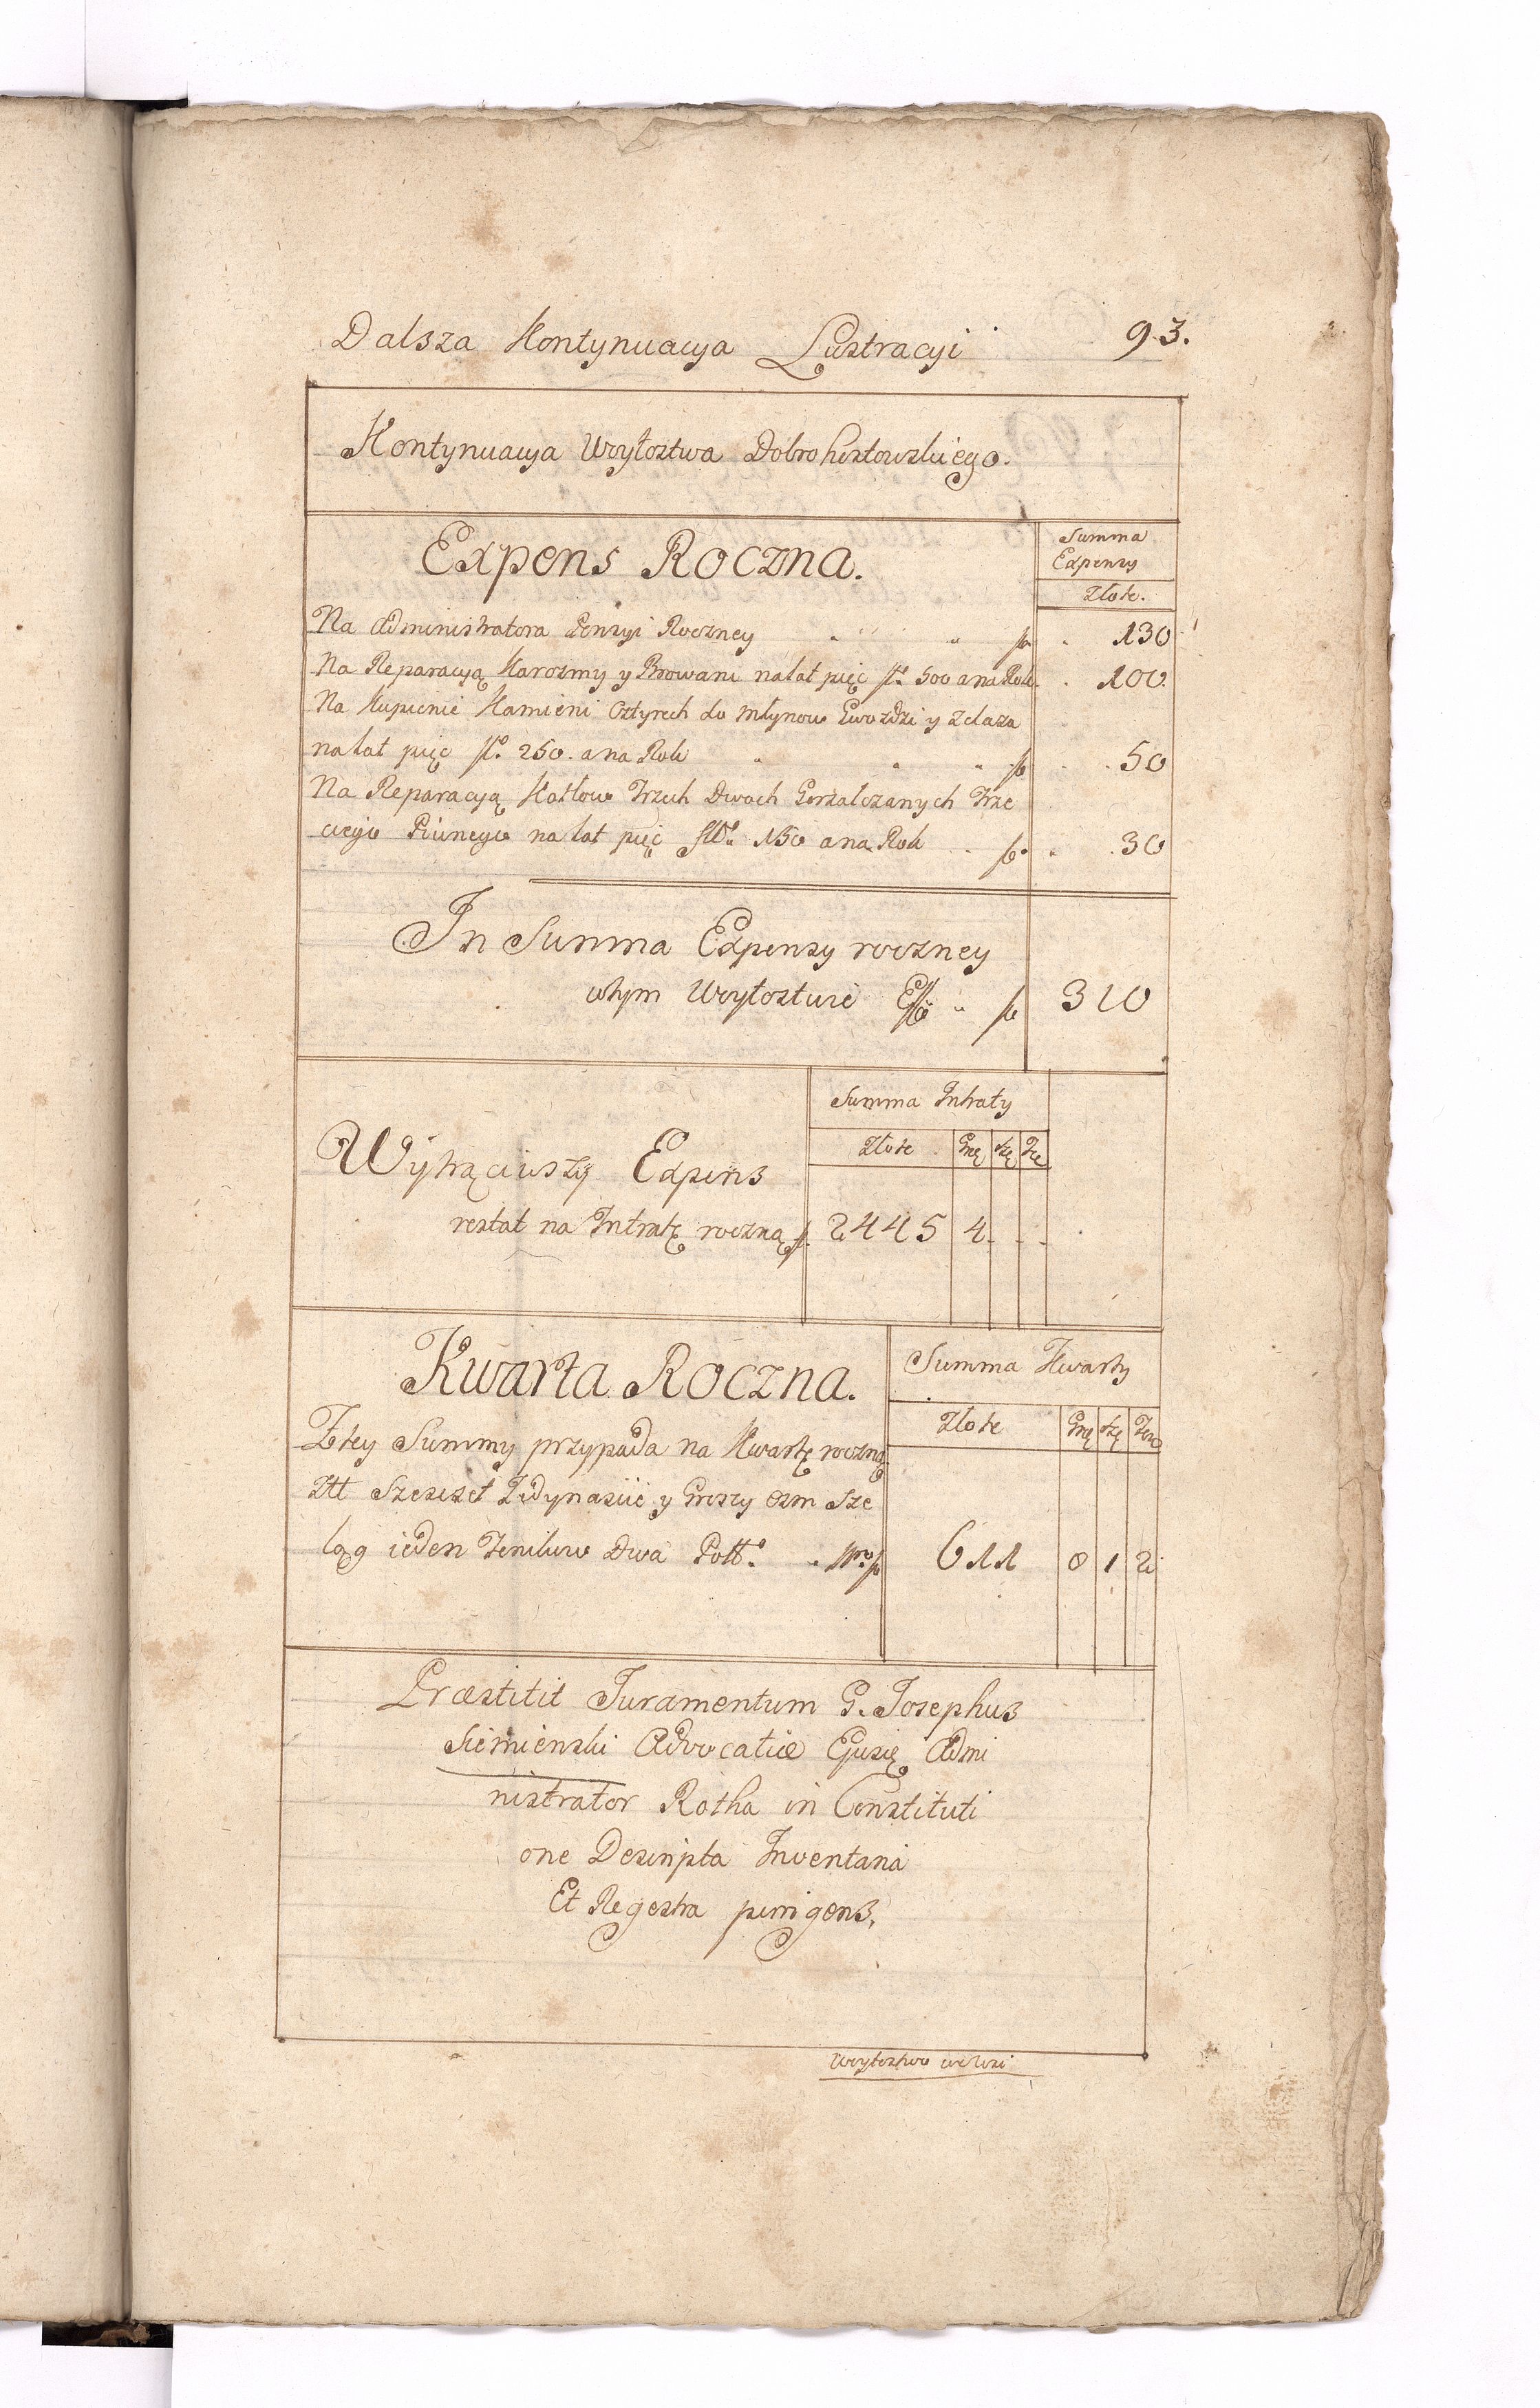 Dalsza Kontynuacya Lustracyi 93.
Kontynuacya Woytostwa Dobrohostowskiego.
Expens Roczna.
Summa
Expensy
Złote.
Na Administratora Pensyi Roczney 130
Na Reparacyą Karczmy y Browaru na lat pięć fł. 500 a na Rok 100.
Na Kupienie Kamieni Cztyrech do młynow Gwozdzi y Zelaza
na lat pięć fł. 250. a na Rok 50
Na Reparacyą Kotłow Trzech Dwoch Gorzalczanych Trze
ciego Piwnego na lat pięć 150 a na Rok 30
In Summa Expensy roczney
wtym Woytostwie 310
Summa Intraty
Złote Grę Szę Tre
Wytrąciwszy Expens
restat na Intratę roczną 2445 4
Kwarta Roczna.
Summa Kwarty
Złote Grę Szę Ter
Z tey Summy przypada na Kwartę roczną
Złł Szeszset Iedynascie y Groszy osm Sze
ląg ieden Ternarow Dwa Poll. 611 8 1 2
Præstitit Juramentum G. Josephus
Siemienski Advocatiæ Ejusę Admi
nistrator Rotha in Constituti
one Descripta Inventaria
Et Regestra porrigens,
Woytostwo we Wsi